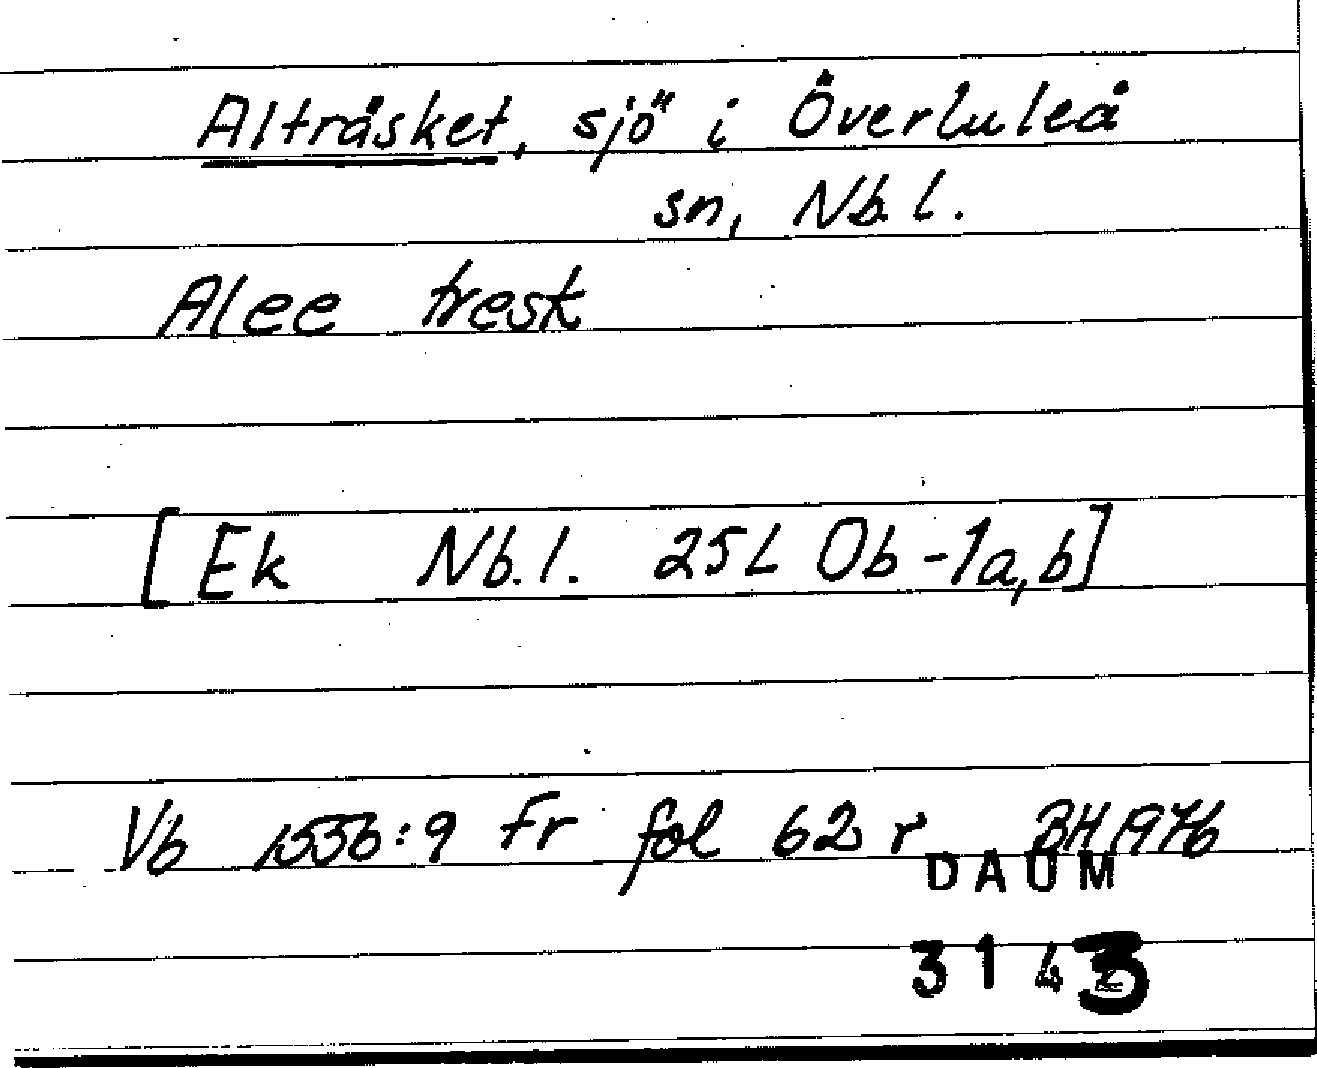 Alträsket, sjö i Överluleå
sn, Nb.l.
Alee tresk
[Ek Nb.l. 25L 0b-1a,b]
Vb 1556:9 Fr fol 62 r BH 1976
DAUM
3143